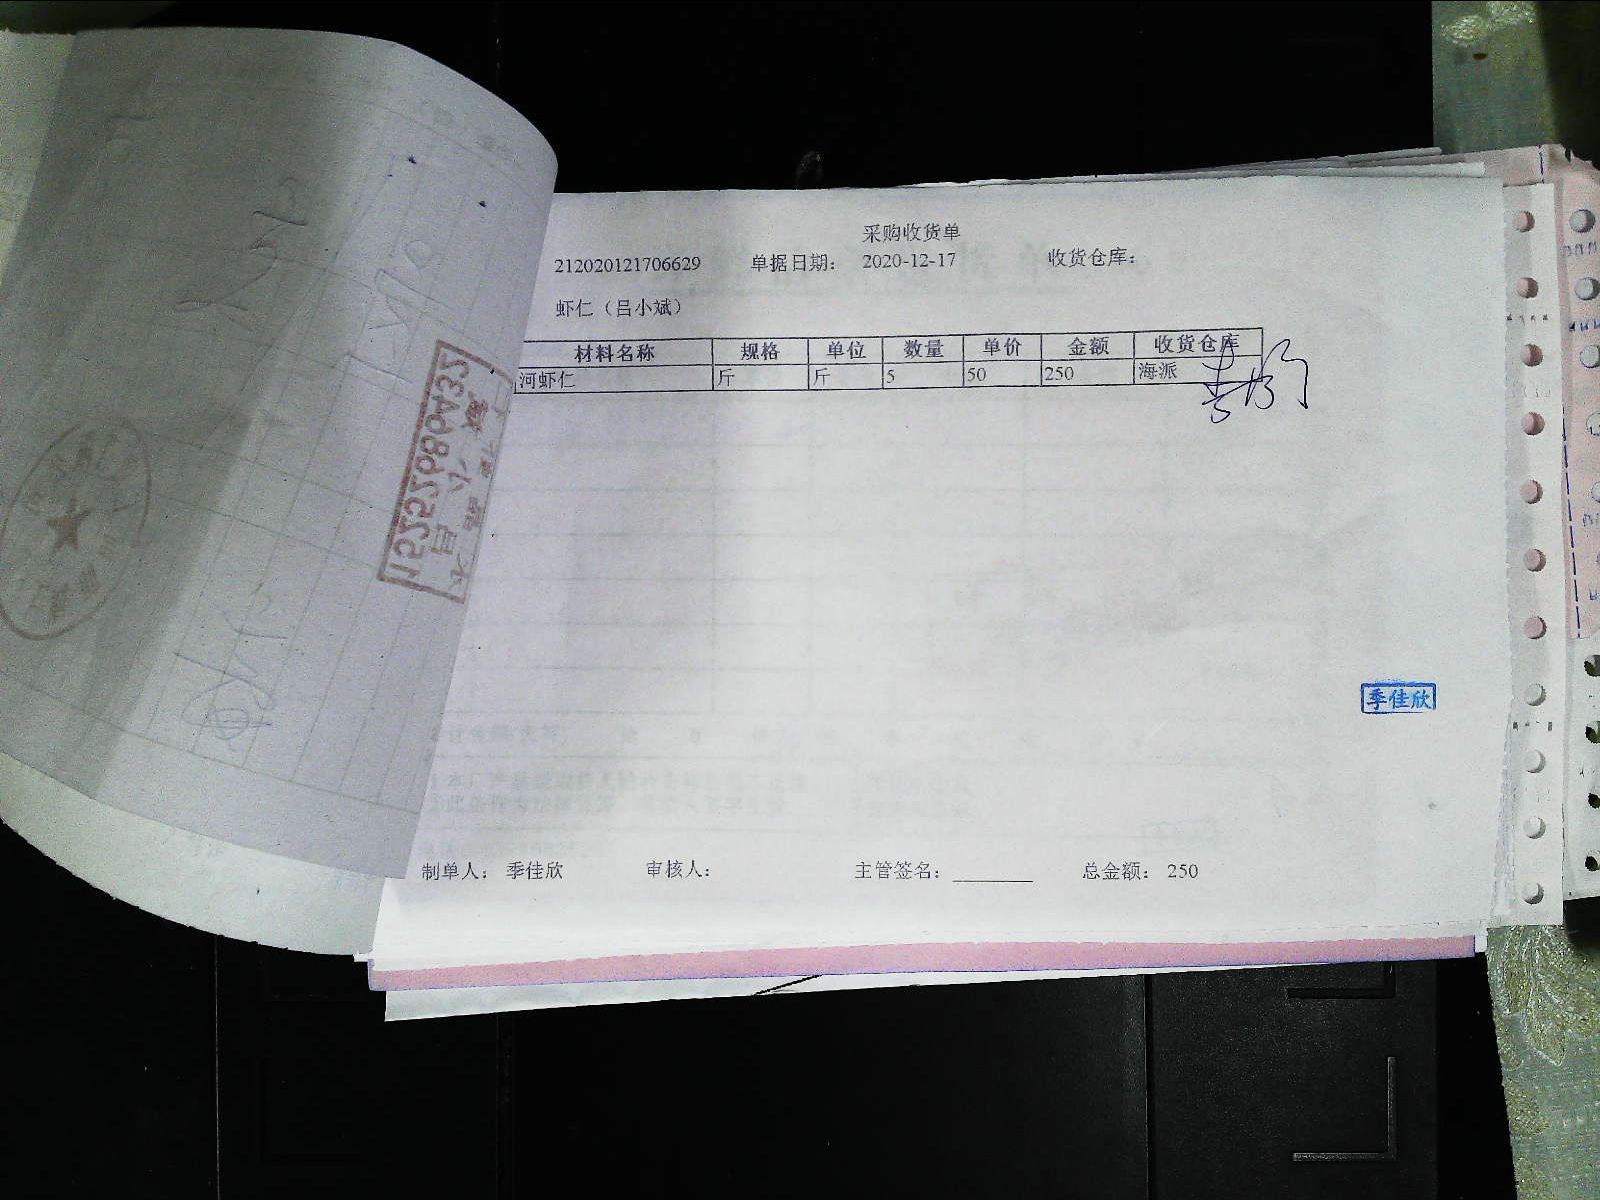 采购收货单
212020121706629 单据日期： 2020-12-17 收货仓库：
虾仁（吕小斌）
材料名称 规格 单位 数量 单价 金额 收货仓库
河虾仁 斤 斤 5 50 250 海派
季佳欣
制单人： 季佳欣 审核人： 主管签名： 总金额： 250